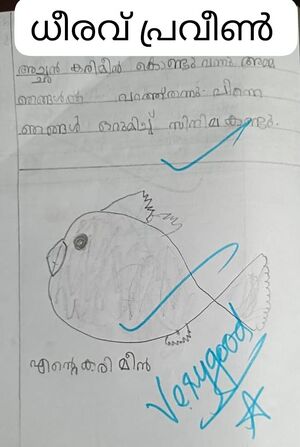 ധീരവ് പ്രവീൺ
അച്ഛൻ കരിമീൻ കൊണ്ടുവന്നു അമ്മ
ഞങ്ങൾക്ക് വറത്തുതന്നു പിന്നെ
ഞങ്ങൾ ഒരുമിച്ച് സിനിമ കണ്ടു.
എന്റെ കരി മീൻ
Very good